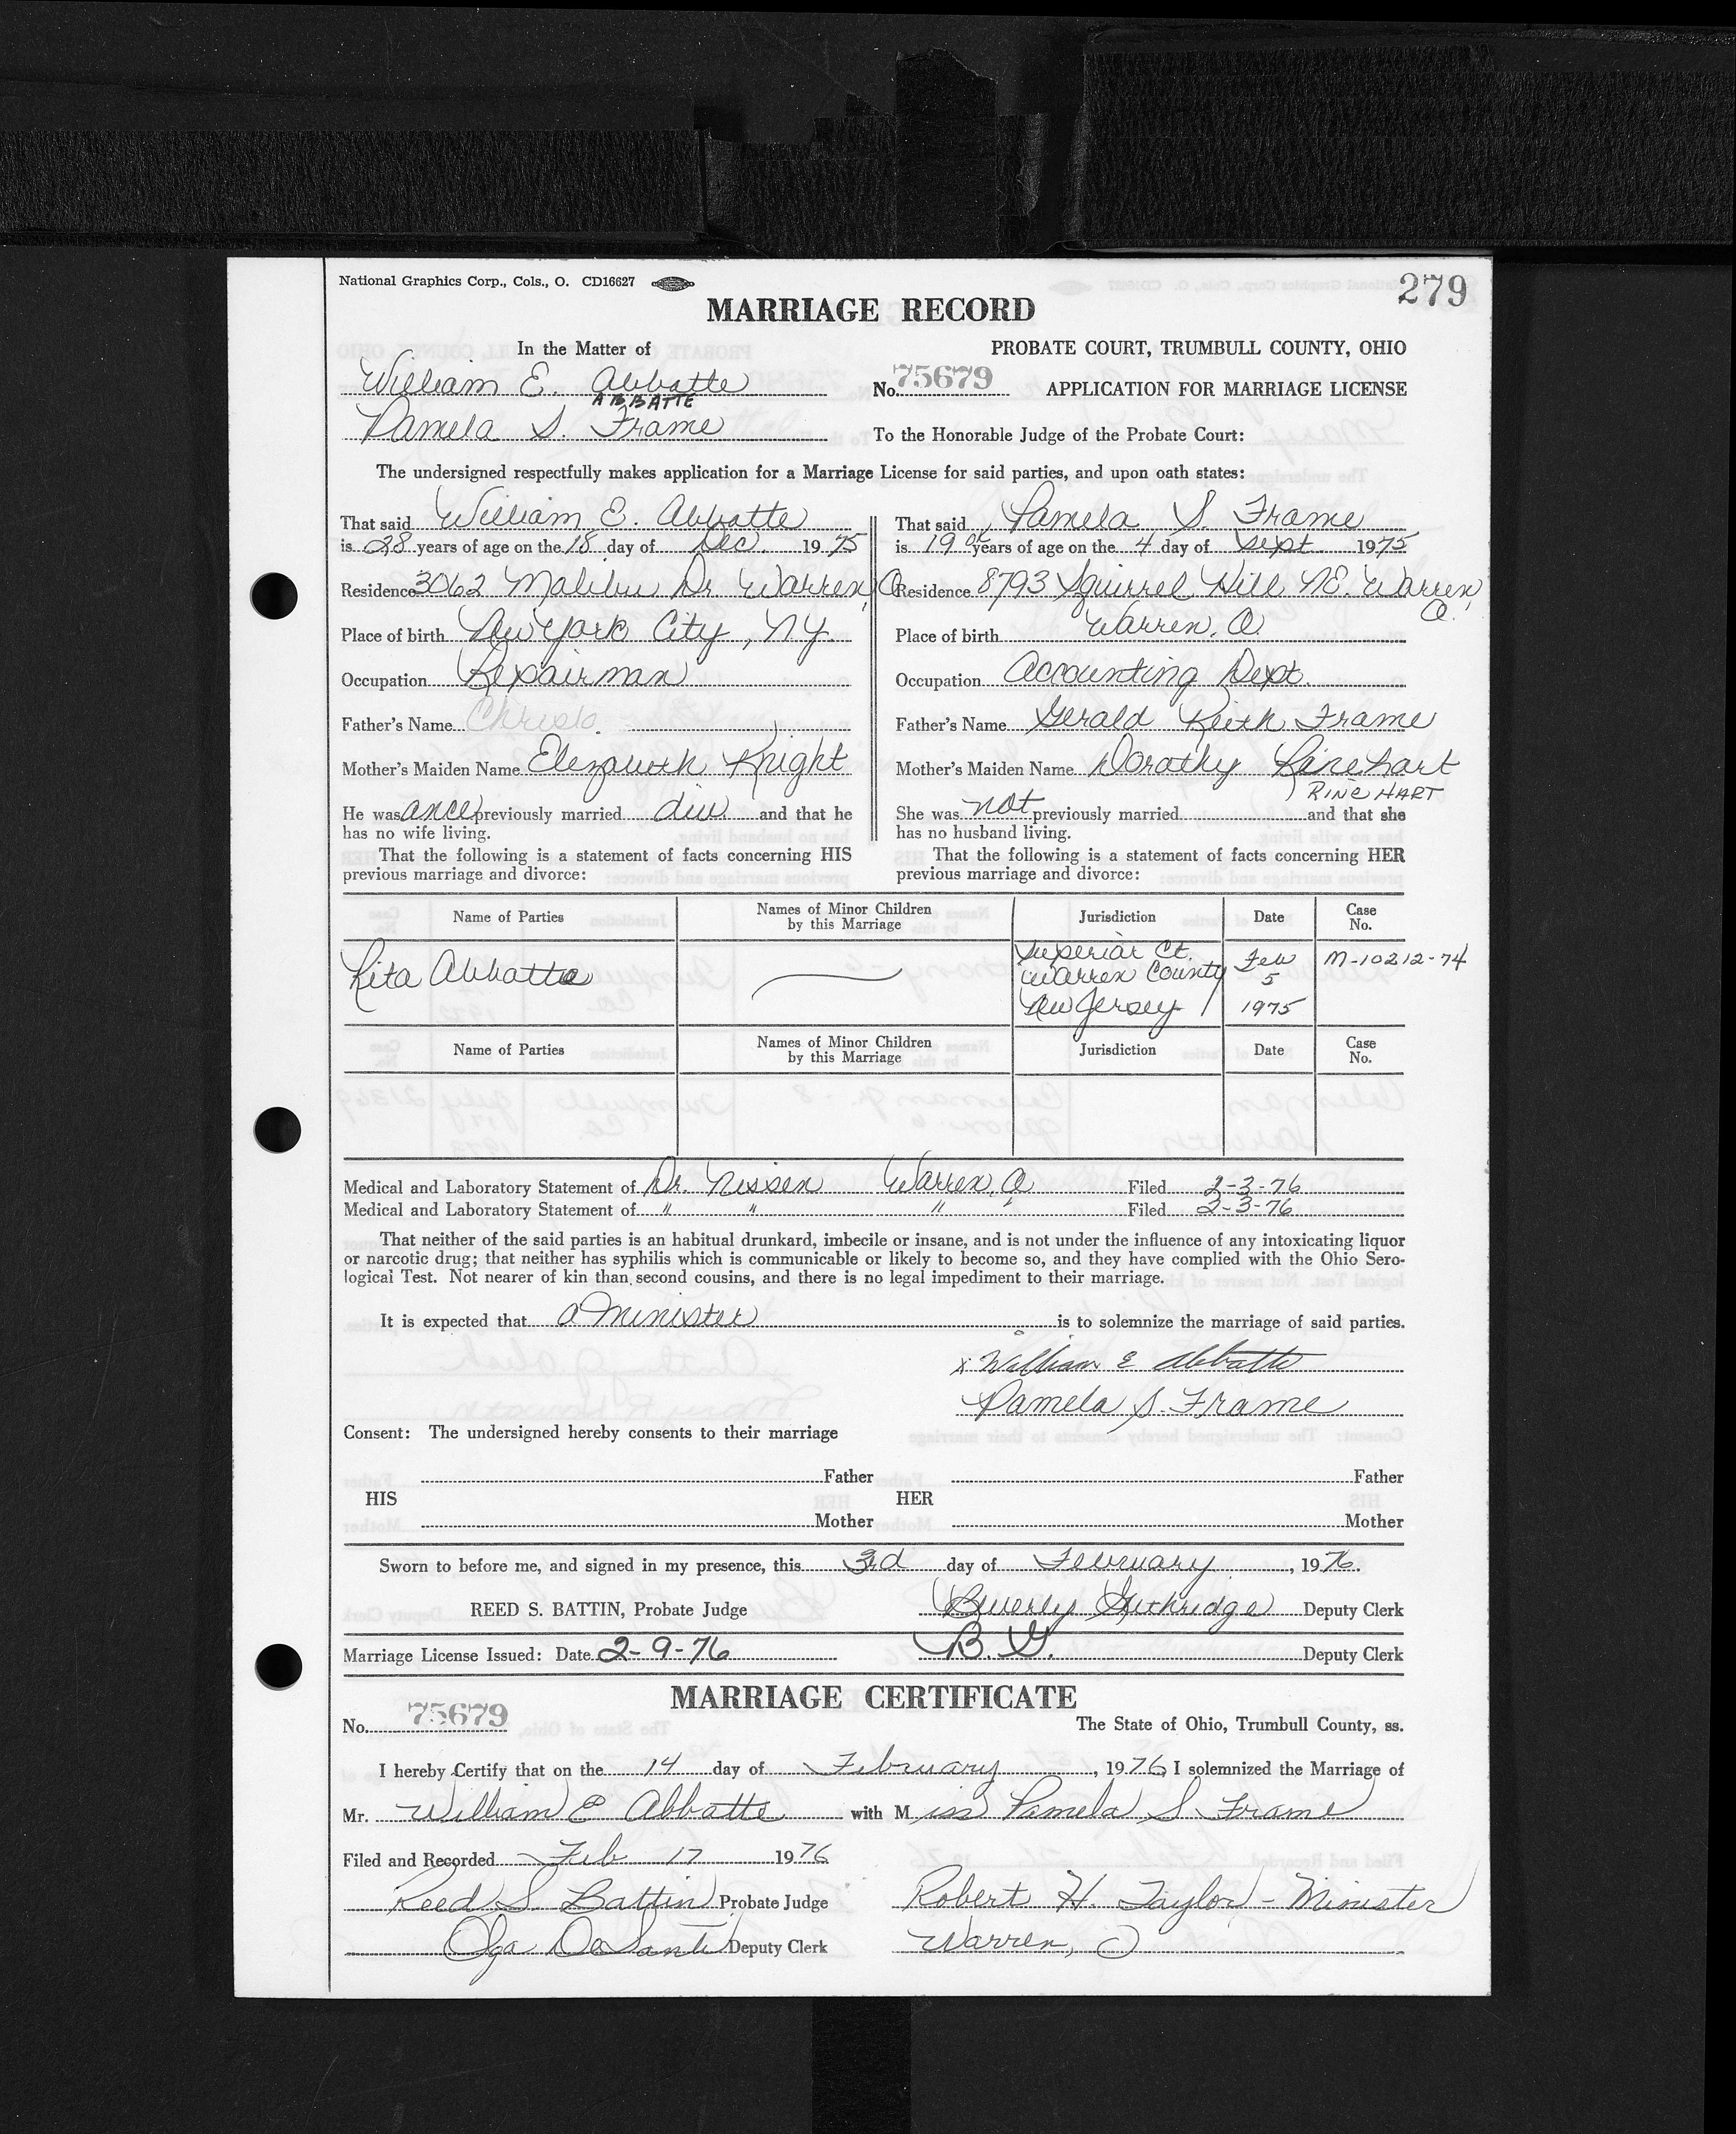 National Graphics Corp., Cols., O. CD16627
279
MARRIAGE RECORD
In the Matter of
PROBATE COURT, TRUMBULL COUNTY, OHIO
William E. Abbatte
ABBATTE
No. 75679 APPLICATION FOR MARRIAGE LICENSE
Pamela S. Frame
To the Honorable Judge of the Probate Court:
The undersigned respectfully makes application for a Marriage License for said parties, and upon oath states:
That said William E. Abbatte
is 28 years of age on the 18 day of Dec. 1975
Residence 3062 Malibu Dr. Warren, O
Place of birth New York City, NY.
Occupation Repairman
Father's Name
Mother's Maiden Name Elizabeth Knight
He was once previously married div. and that he
has no wife living.
That the following is a statement of facts concerning HIS
previous marriage and divorce:
That said Pamela S. Frame
is 19 years of age on the 4 day of Sept. 1975
Residence 8793 Squirrel Hill NE. Warren,
O.
Place of birth Warren, O.
Occupation Accounting Dept.
Father's Name Gerald Keith Frame
Mother's Maiden Name Dorothy Rinehart
RINEHART
She was not previously married and that she
has no husband living.
That the following is a statement of facts concerning HER
previous marriage and divorce:
Name of Parties Names of Minor Children by this Marriage Jurisdiction Date Case No.
Rita Abbatte — Superior Ct. Warren County New Jersey Feb 5 1975 M-10212-74
Name of Parties Names of Minor Children by this Marriage Jurisdiction Date Case No.
Medical and Laboratory Statement of Dr. Nissen Warren, O Filed 2-3-76
Medical and Laboratory Statement of " " " " Filed 2-3-76
That neither of the said parties is an habitual drunkard, imbecile or insane, and is not under the influence of any intoxicating liquor
or narcotic drug; that neither has syphilis which is communicable or likely to become so, and they have complied with the Ohio Sero-
logical Test. Not nearer of kin than second cousins, and there is no legal impediment to their marriage.
It is expected that a Minister is to solemnize the marriage of said parties.
x William E Abbatte
Pamela S. Frame
Consent: The undersigned hereby consents to their marriage
Father Father
HIS HER
Mother Mother
Sworn to before me, and signed in my presence, this 3rd day of February, 1976.
REED S. BATTIN, Probate Judge Beverly Guthridge Deputy Clerk
Marriage License Issued: Date 2-9-76 B. G. Deputy Clerk
MARRIAGE CERTIFICATE
No. 75679 The State of Ohio, Trumbull County, ss.
I hereby Certify that on the 14 day of February, 1976, I solemnized the Marriage of
Mr. William E Abbatte with Miss Pamela S. Frame
Filed and Recorded Feb 17 1976
Reed S. Battin Probate Judge Robert H. Taylor - Minister
Olga DeSanti Deputy Clerk Warren, O